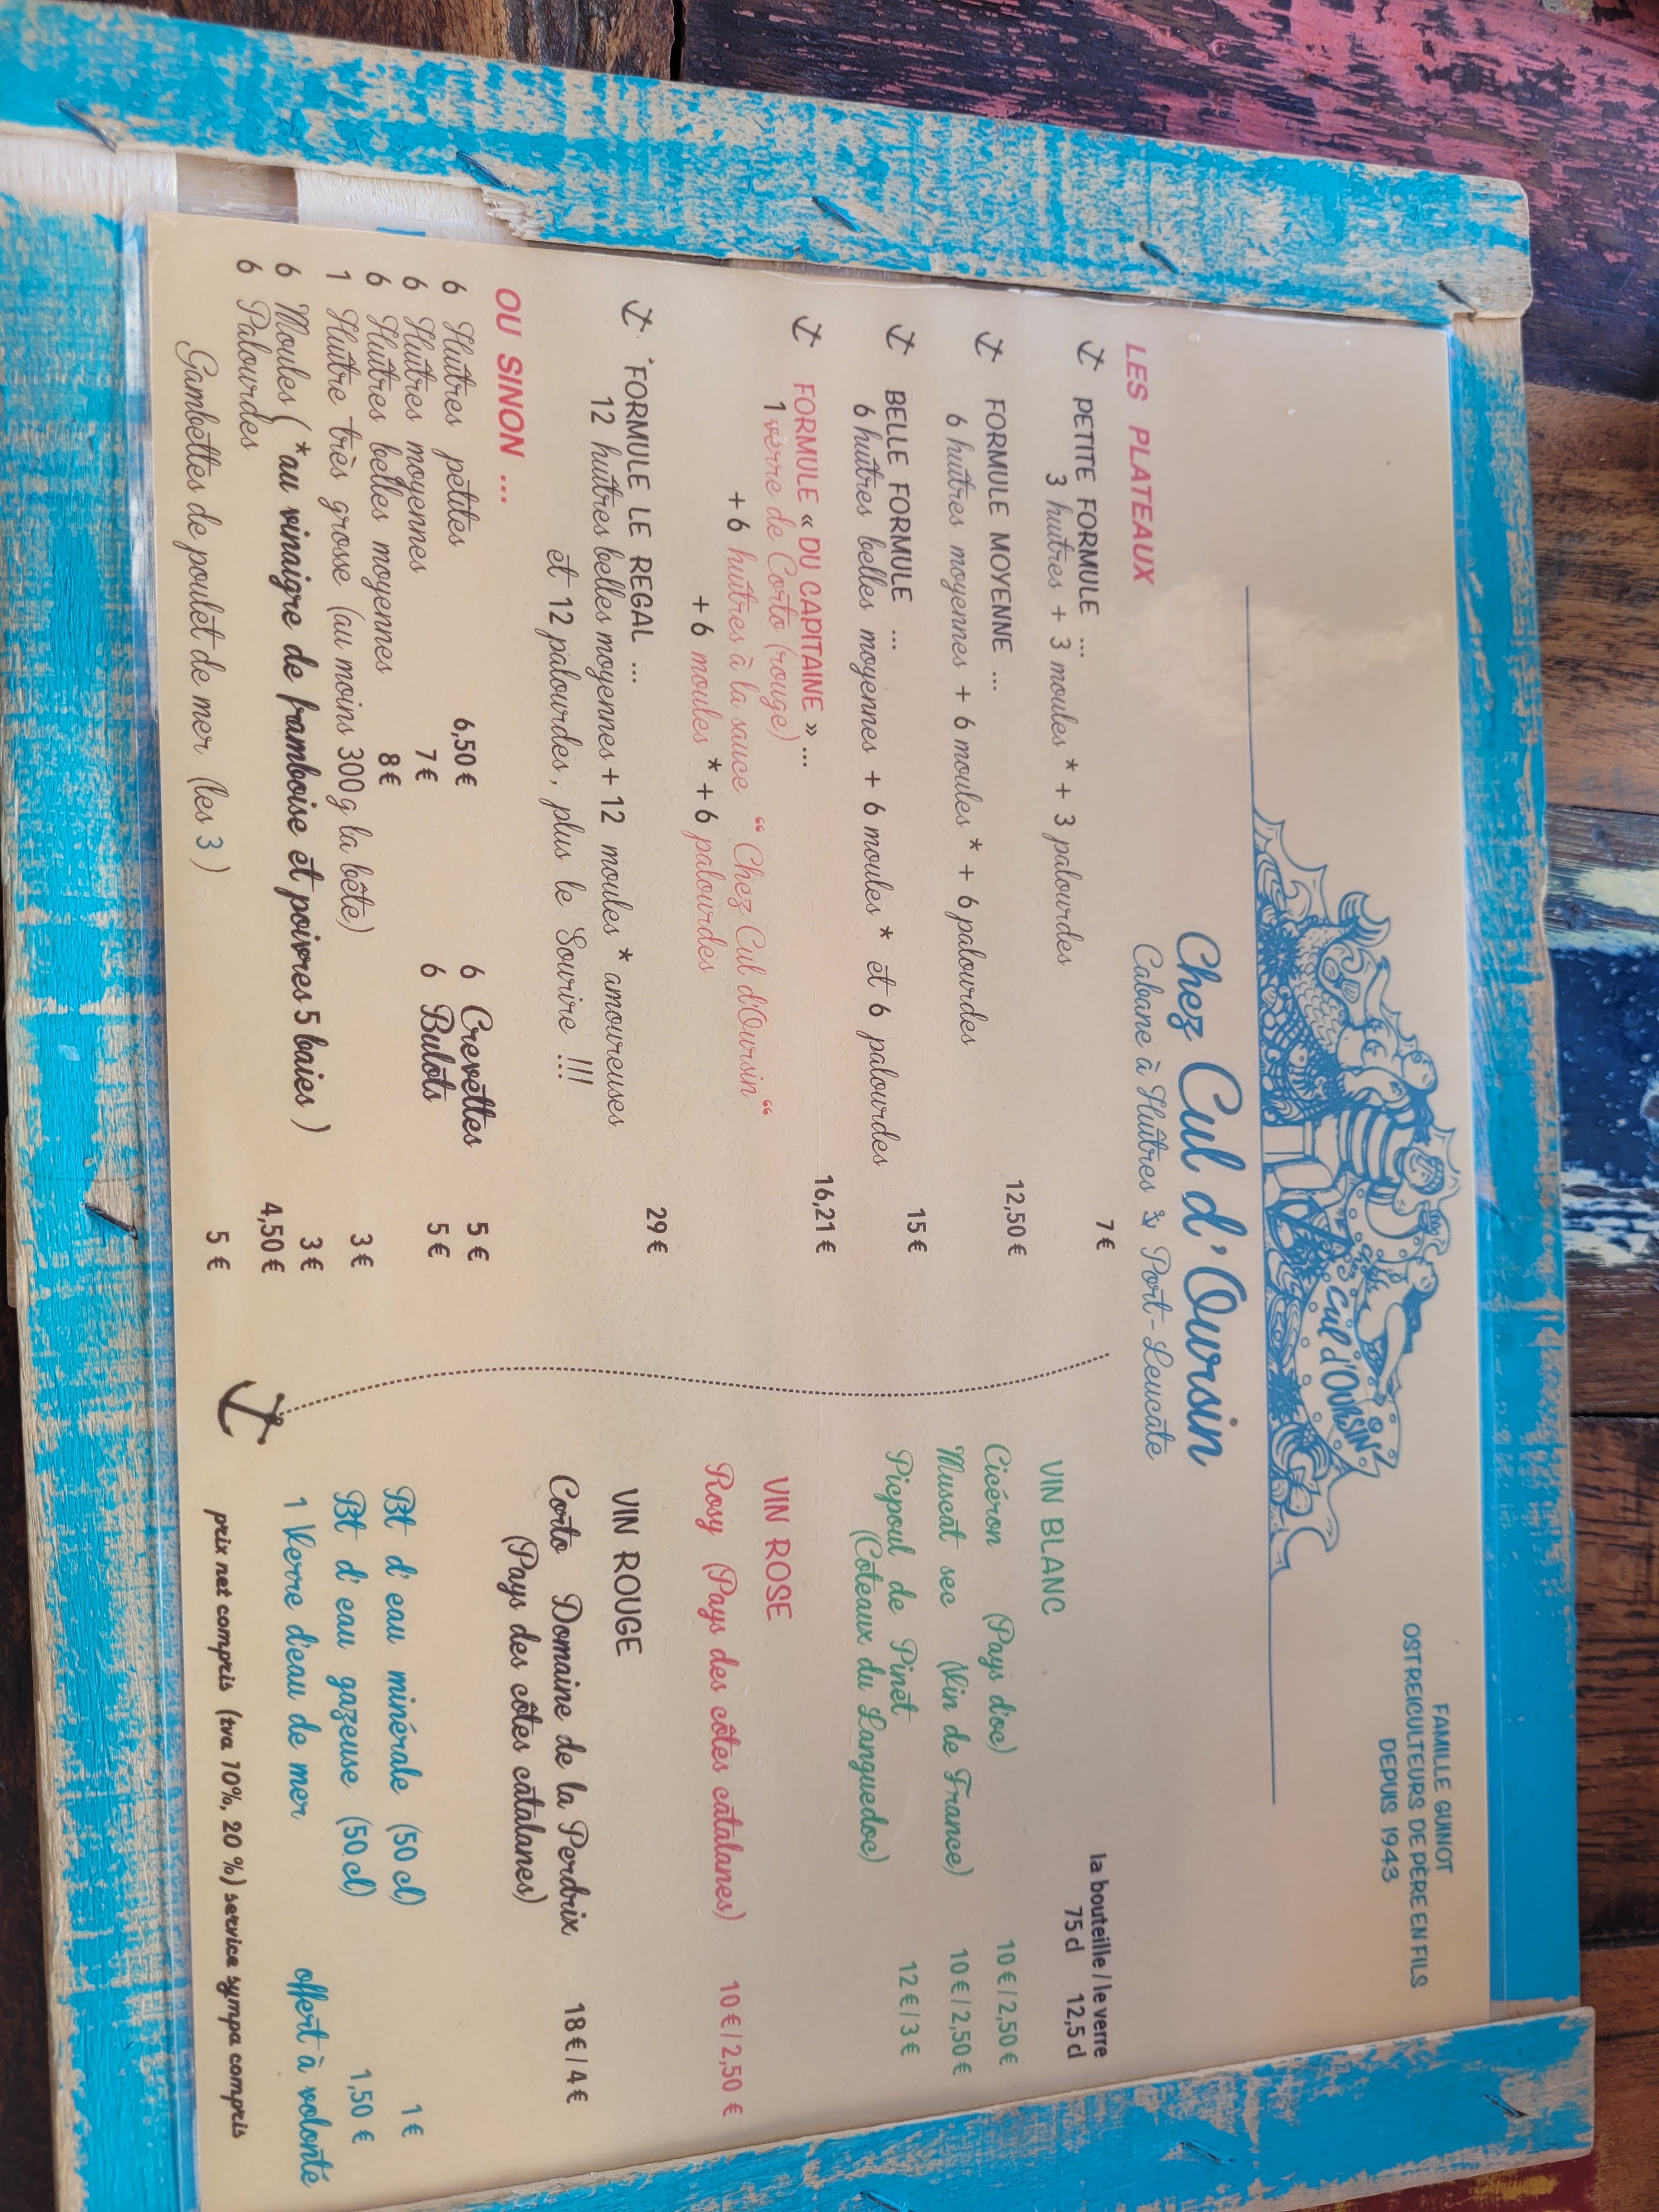 FAMILLE GUINOT
OSTREICULTEURS DE PÈRE EN FILS
DEPUIS 1943
Cul d'OURSIN
Chez Cul d'Oursin
Cabane à Huîtres Port-Leucate
LES PLATEAUX
PETITE FORMULE ... 7 €
3 huîtres + 3 moules * + 3 palourdes
FORMULE MOYENNE ... 12,50 €
6 huîtres moyennes + 6 moules * + 6 palourdes
BELLE FORMULE ... 15 €
6 huîtres belles moyennes + 6 moules * et 6 palourdes
FORMULE « DU CAPITAINE » ... 16,21 €
1 verre de Corto (rouge)
+ 6 huîtres à la sauce “ Chez Cul d'Oursin “
+ 6 moules * + 6 palourdes
FORMULE LE REGAL ... 29 €
12 huîtres belles moyennes + 12 moules * amoureuses
et 12 palourdes, plus le Sourire !!!
OU SINON ...
6 Huîtres petites 6,50 € 6 Crevettes 5 €
6 Huîtres moyennes 7 € 6 Bulots 5 €
6 Huîtres belles moyennes 8 €
1 Huître très grosse (au moins 300 g la bête) 3 €
6 Moules ( *au vinaigre de framboise et poivres 5 baies ) 3 €
6 Palourdes 4,50 €
Gambettes de poulet de mer (les 3 ) 5 €
la bouteille / le verre
75 cl 12,5 cl
VIN BLANC
Cicéron (Pays d'oc) 10 € / 2,50 €
Muscat sec (Vin de France) 10 € / 2,50 €
Picpoul de Pinet 12 € / 3 €
(Coteaux du Languedoc)
VIN ROSE
Rosy (Pays des côtes catalanes) 10 € / 2,50 €
VIN ROUGE
Corto Domaine de la Perdrix 18 € / 4 €
(Pays des côtes catalanes)
Bt d'eau minérale (50 cl) 1 €
Bt d'eau gazeuse (50 cl) 1,50 €
1 Verre d'eau de mer offert à volonté
prix net compris (tva 10%, 20 %) service sympa compris